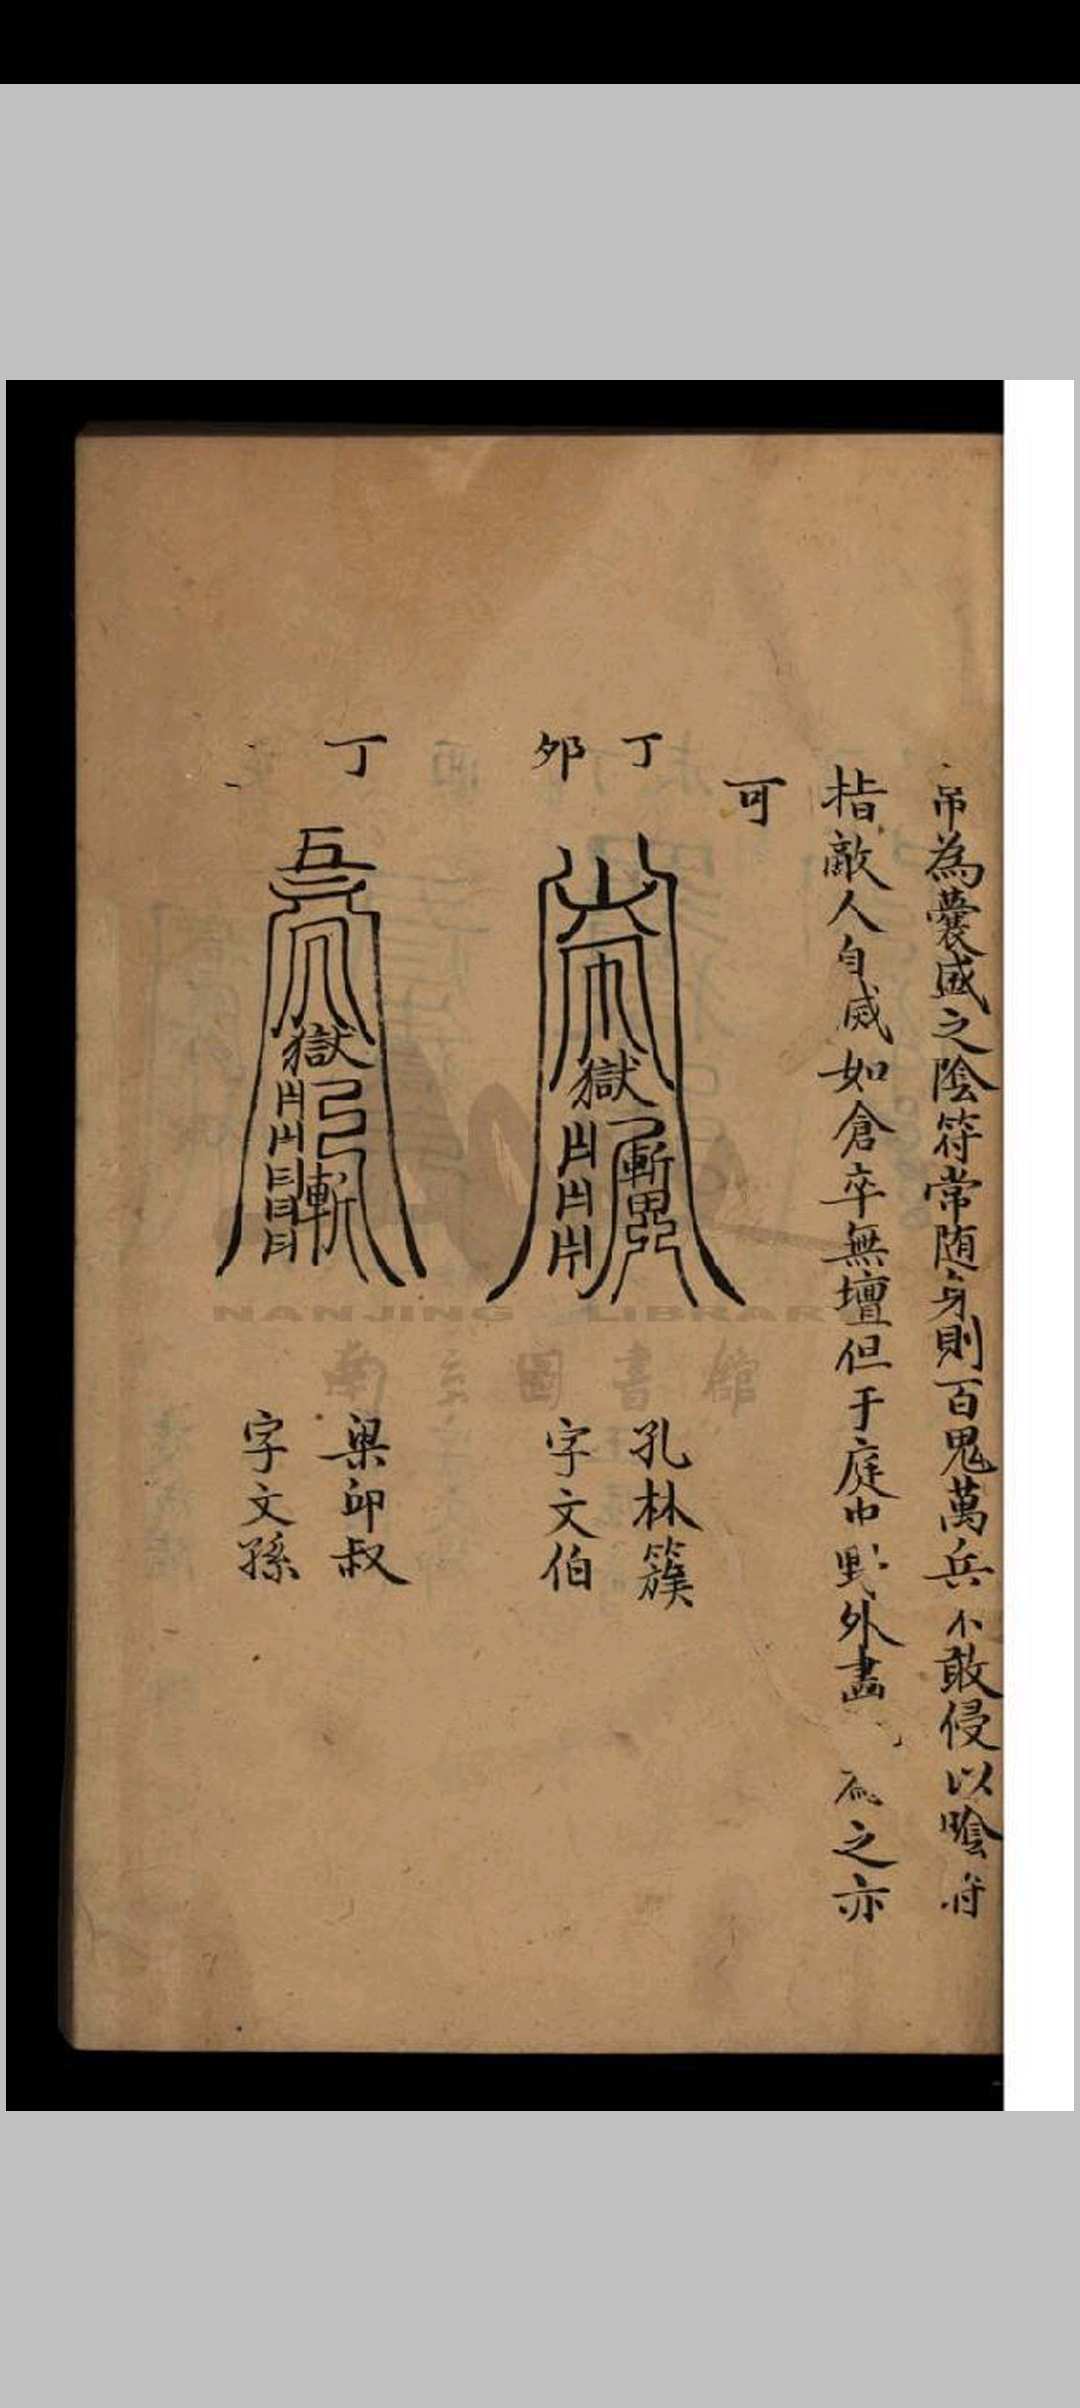 帛為囊盛之陰符常随身則百鬼萬兵不敢侵以陰符
指敵人自滅如倉卒無壇但于庭中野外畫之亦
可
丁卯
獄
斬
孔林簇
字文伯
丁
獄
斬
梁邱叔
字文孫
NANJING LIBRAR
南京圖書館